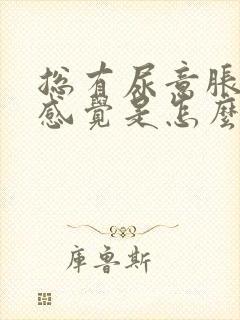 总有尿意脹
感覺是怎麼
庫魯斯